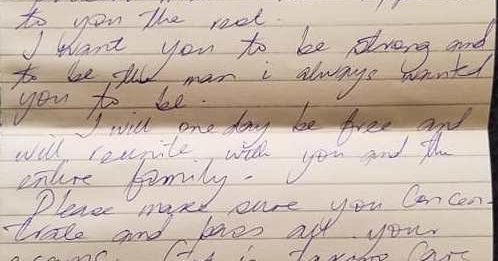 to you the rest.
I want you to be strong and
to be the man i always wanted
you to be.
I will one day be free and
will reunite with you and the
entire family.
Please make sure you concen-
trate and pass all your
exams. is taking care